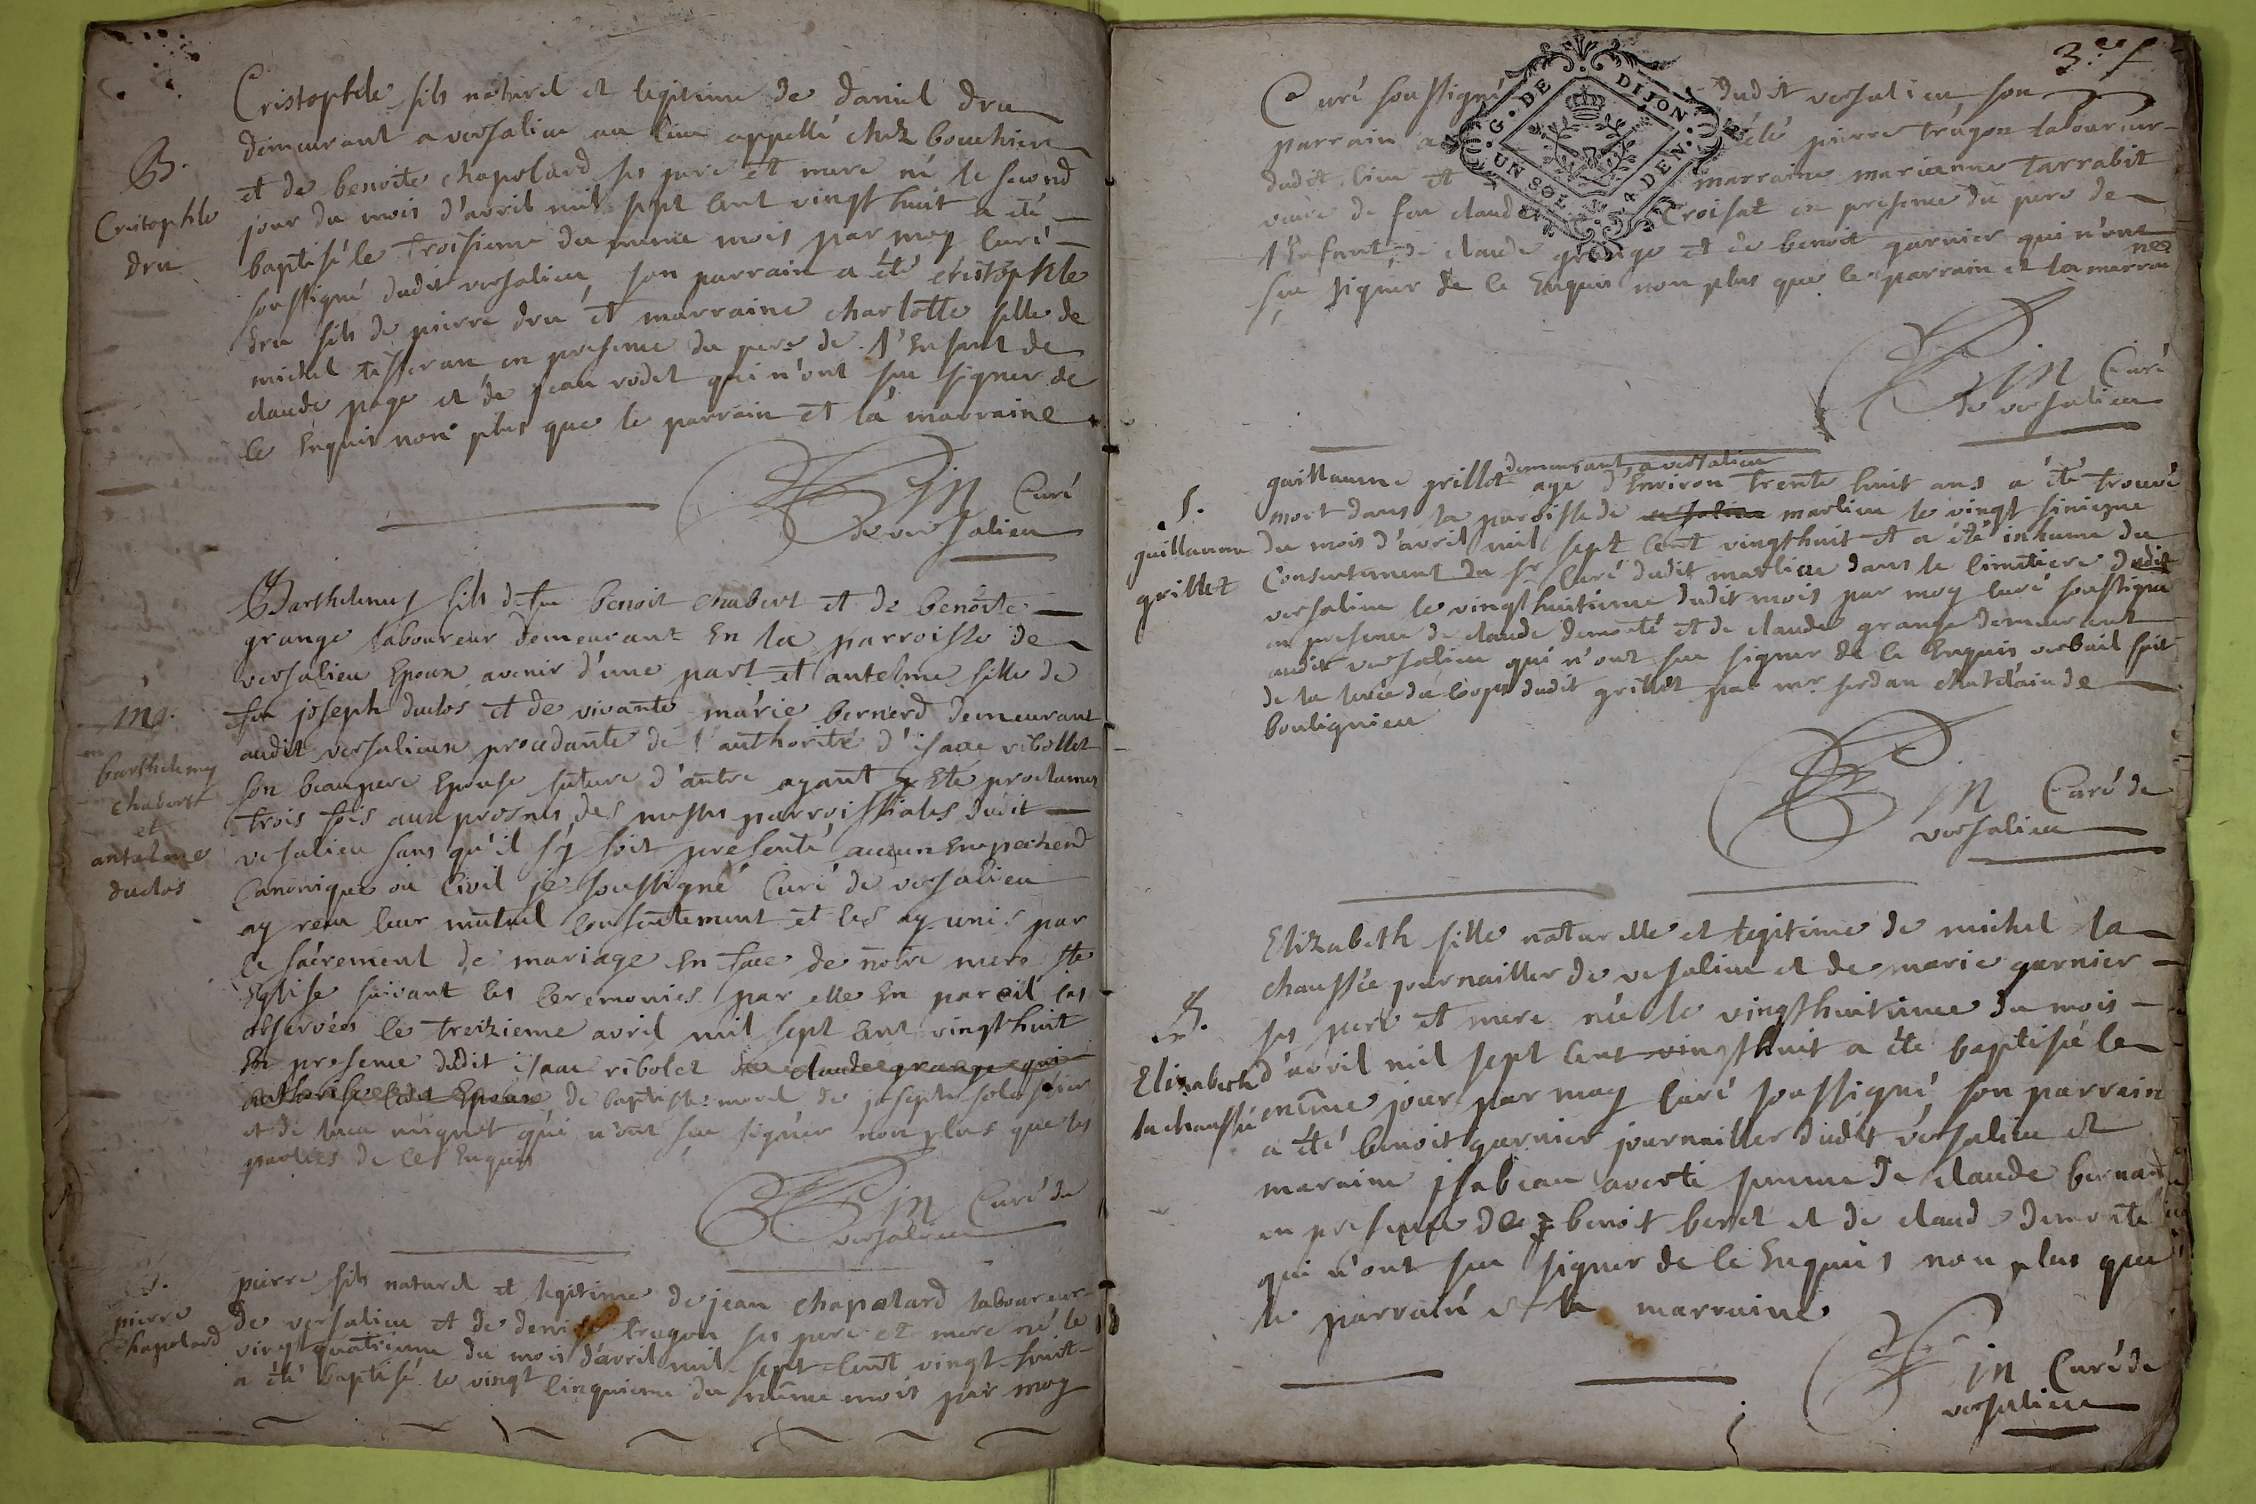 B.
Cristophle
dru
Cristophle fils naturel et legitime de daniel dru
demeurant a versalieu au lieu appellé chez bouchieu
et de benoite chapolard ses pere et mere né le second
jour du mois d'avril mil sept cent vingt huit a été
baptisé le troisieme du meme mois par moy curé
soussigné dudit versalieu, son parrain a été cristophle
dru fils de pierre dru et marraine charlotte fille de
michel tisseran en presence du pere de l'Enfant de
claude page et de jean rodet qui n'ont sçu signer de
ce Enquis non plus que le parrain et la marraine
Curé
de versalieu
mg.
barthelemy
chabert
et
antelme
duclos
Barthelemy fils de feu benoit chabert et de benoite
grange laboureur demeurant En la parroisse de
versalieu Epoux avenir d'une part et antelme fille de
feu joseph duclos et de vivante marie bernerd demeurant
audit versalieu procedante de l'authorité d'isaac ribollet
son beaupere Epouse future d'autre ayant Eté proclames
trois fois aux prosnes des messes parroissiales dudit
versalieu sans qu'il s'y soit presenté aucun Empechend
Canonique ou Civil je soussigné Curé de versalieu
ay receu leur mutuel consentement et les ay unis par
le sacrement de mariage En face de notre mere ste
Eglise suivant les ceremonies par elle En pareil cas
observées le treizieme avril mil sept cent vingt huit
En presence dudit isaac ribolet de claude grange qui
de baptiste morel de joseph
et de luca mignet qui n'ont sçu signer non plus que les
parties de ce Enquis
Curé de
versalieu
B.
pierre
chapolard
pierre fils naturel et legitime de jean chapolard laboureur
de versalieu et de denise trugon ses pere et mere né le
vingt quatrieme du mois d'avril mil sept cent vingt huit
a été baptisé le vingt cinquieme du même mois par moy
3.e f
Curé soussigné dudit versalieu, son
parrain a été pierre trugon laboureur
dudit lieu et marraine marianne tarrabit
veuve de feu claude Croisat en presence du pere de
l'Enfant, de claude grange et de benoit garnier qui n'ont
sçu signer de ce Enquis non plus que le parrain et la marraine
G. DE DIJON
UN SOL 4 DEN.
Curé
de versalieu
S.
guillaume
grillet
demeurant a versalieu
guillaume grillet agé d'Environ trente huit ans a été trouvé
mort dans la paroisse de versalieu marlieu le vingt sinieme
du mois d'avril mil sept cent vingthuit et a été inhumé du
Consentement du sr Curé dudit marlieu dans le cimetiere dudit
versalieu le vingthuitieme dudit mois par moy curé soussigné
en presence de claude demonté et de claude grange demeurent
audit versalieu qui n'ont sçu signer de ce Enquis verbail fait
de la levée du corps dudit grillet par mr serdan chatelain de
bouligneu
Curé de
versalieu
B.
Elizabeth
la chaussée
Elizabeth fille naturelle et legitime de michel la
chaussée journailler de versalieu et de marie garnier
ses pere et mere née le vingthuitieme du mois
d'avril mil sept cent vingt huit a été baptisée le
même jour par moy curé soussigné, son parrain
a été benoit garnier journailler dudit versalieu et
maraine jsabeau averti femme de claude bernard
en presence de benoit beret et de claude demonté
qui n'ont sçu signer de ce Enquis non plus que
le parrain et la marraine
Curé de
versalieu